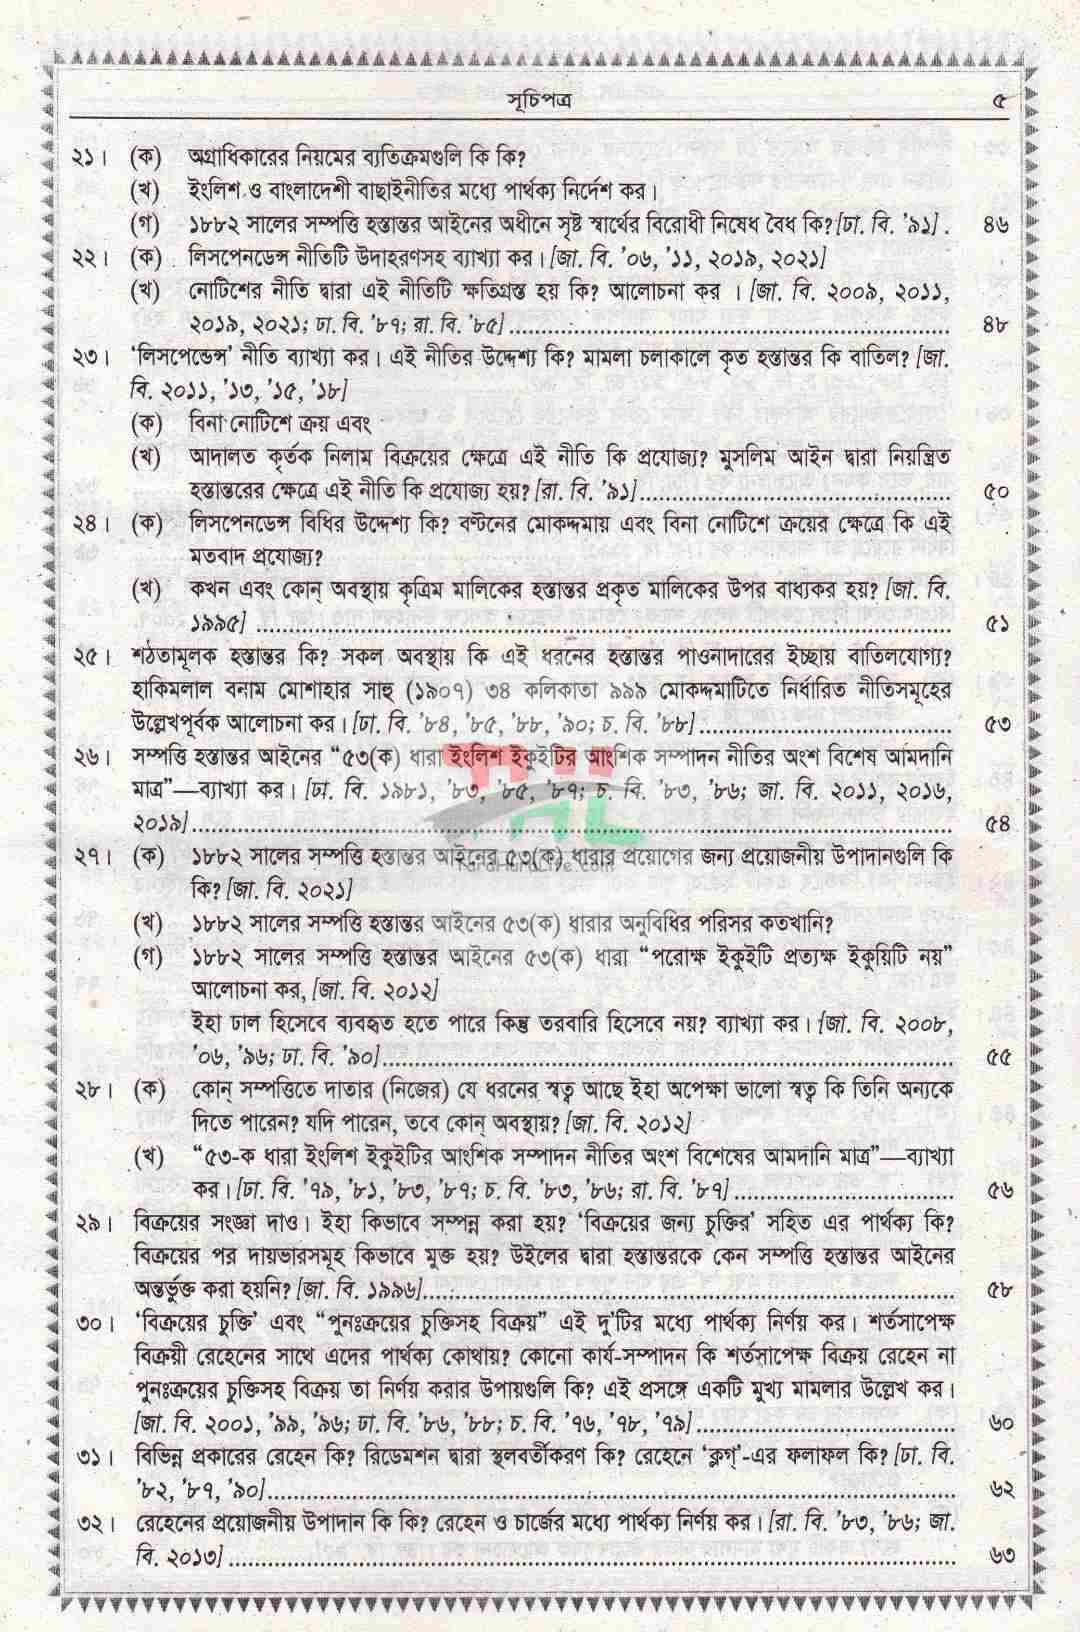 সূচিপত্র ৫
২১। (ক) অগ্রাধিকারের নিয়মের ব্যতিক্রমগুলি কি কি?
(খ) ইংলিশ ও বাংলাদেশী বাছাইনীতির মধ্যে পার্থক্য নির্দেশ কর।
(গ) ১৮৮২ সালের সম্পত্তি হস্তান্তর আইনের অধীনে সৃষ্ট স্বার্থের বিরোধী নিষেধ বৈধ কি? [ঢা. বি. '৯১] . ৪৬
২২। (ক) লিসপেনডেন্স নীতিটি উদাহরণসহ ব্যাখ্যা কর। [জা. বি. '০৬, '১১, ২০১৯, ২০২১]
(খ) নোটিশের নীতি দ্বারা এই নীতিটি ক্ষতিগ্রস্ত হয় কি? আলোচনা কর । [জা. বি. ২০০৯, ২০১১,
২০১৯, ২০২১; ঢা. বি. '৮৭; রা. বি. '৮৫] ........ ৪৮
২৩। 'লিসপেন্ডেন্স' নীতি ব্যাখ্যা কর। এই নীতির উদ্দেশ্য কি? মামলা চলাকালে কৃত হস্তান্তর কি বাতিল? [জা.
বি. ২০১১, '১৩, '১৫, '১৮]
(ক) বিনা নোটিশে ক্রয় এবং
(খ) আদালত কৃর্তক নিলাম বিক্রয়ের ক্ষেত্রে এই নীতি কি প্রযোজ্য? মুসলিম আইন দ্বারা নিয়ন্ত্রিত
হস্তান্তরের ক্ষেত্রে এই নীতি কি প্রযোজ্য হয়? [রা. বি. '৯১] ........ ৫০
২৪। (ক) লিসপেনডেন্স বিধির উদ্দেশ্য কি? বণ্টনের মোকদ্দমায় এবং বিনা নোটিশে ক্রয়ের ক্ষেত্রে কি এই
মতবাদ প্রযোজ্য?
(খ) কখন এবং কোন্ অবস্থায় কৃত্রিম মালিকের হস্তান্তর প্রকৃত মালিকের উপর বাধ্যকর হয়? [জা. বি.
১৯৯৫] ........ ৫১
২৫। শঠতামূলক হস্তান্তর কি? সকল অবস্থায় কি এই ধরনের হস্তান্তর পাওনাদারের ইচ্ছায় বাতিলযোগ্য?
হাকিমলাল বনাম মোশাহার সাহু (১৯০৭) ৩৪ কলিকাতা ৯৯৯ মোকদ্দমাটিতে নির্ধারিত নীতিসমূহের
উল্লেখপূর্বক আলোচনা কর। [ঢা. বি. '৮৪, '৮৫, '৮৮, '৯০; চ. বি. '৮৮] ........ ৫৩
২৬। সম্পত্তি হস্তান্তর আইনের “৫৩(ক) ধারা ইংলিশ ইকুইটির আংশিক সম্পাদন নীতির অংশ বিশেষ আমদানি
মাত্র”—ব্যাখ্যা কর। [ঢা. বি. ১৯৮১, '৮৩, '৮৫, '৮৭; চ. বি. '৮৩, '৮৬; জা. বি. ২০১১, ২০১৬,
২০১৯] ........ ৫৪
২৭। (ক) ১৮৮২ সালের সম্পত্তি হস্তান্তর আইনের ৫৩(ক) ধারার প্রয়োগের জন্য প্রয়োজনীয় উপাদানগুলি কি
কি? [জা. বি. ২০২১]
(খ) ১৮৮২ সালের সম্পত্তি হস্তান্তর আইনের ৫৩(ক) ধারার অনুবিধির পরিসর কতখানি?
(গ) ১৮৮২ সালের সম্পত্তি হস্তান্তর আইনের ৫৩(ক) ধারা “পরোক্ষ ইকুইটি প্রত্যক্ষ ইকুয়িটি নয়”
আলোচনা কর, [জা. বি. ২০১২]
ইহা ঢাল হিসেবে ব্যবহৃত হতে পারে কিন্তু তরবারি হিসেবে নয়? ব্যাখ্যা কর। [জা. বি. ২০০৮,
'০৬, '৯৬; ঢা. বি. '৯০] ........ ৫৫
২৮। (ক) কোন্ সম্পত্তিতে দাতার (নিজের) যে ধরনের স্বত্ব আছে ইহা অপেক্ষা ভালো স্বত্ব কি তিনি অন্যকে
দিতে পারেন? যদি পারেন, তবে কোন্ অবস্থায়? [জা. বি. ২০১২]
(খ) “৫৩-ক ধারা ইংলিশ ইকুইটির আংশিক সম্পাদন নীতির অংশ বিশেষের আমদানি মাত্র”—ব্যাখ্যা
কর। [ঢা. বি. '৭৯, '৮১, '৮৩, '৮৭; চ. বি. '৮৩, '৮৬; রা. বি. '৮৭] ........ ৫৬
২৯। বিক্রয়ের সংজ্ঞা দাও। ইহা কিভাবে সম্পন্ন করা হয়? 'বিক্রয়ের জন্য চুক্তির' সহিত এর পার্থক্য কি?
বিক্রয়ের পর দায়ভারসমূহ কিভাবে মুক্ত হয়? উইলের দ্বারা হস্তান্তরকে কেন সম্পত্তি হস্তান্তর আইনের
অন্তর্ভুক্ত করা হয়নি? [জা. বি. ১৯৯৬] ........ ৫৮
৩০। 'বিক্রয়ের চুক্তি' এবং “পুনঃক্রয়ের চুক্তিসহ বিক্রয়” এই দু'টির মধ্যে পার্থক্য নির্ণয় কর। শর্তসাপেক্ষ
বিক্রয়ী রেহেনের সাথে এদের পার্থক্য কোথায়? কোনো কার্য-সম্পাদন কি শর্তসাপেক্ষ বিক্রয় রেহেন না
পুনঃক্রয়ের চুক্তিসহ বিক্রয় তা নির্ণয় করার উপায়গুলি কি? এই প্রসঙ্গে একটি মুখ্য মামলার উল্লেখ কর।
[জা. বি. ২০০১, '৯৯, '৯৬; ঢা. বি. '৮৬, '৮৮; চ. বি. '৭৬, '৭৮, '৭৯] ........ ৬০
৩১। বিভিন্ন প্রকারের রেহেন কি? রিডেমশন দ্বারা স্থলবর্তীকরণ কি? রেহেনে 'ক্লগ্'-এর ফলাফল কি? [ঢা. বি.
'৮২, '৮৭, '৯০] ........ ৬২
৩২। রেহেনের প্রয়োজনীয় উপাদান কি কি? রেহেন ও চার্জের মধ্যে পার্থক্য নির্ণয় কর। [রা. বি. '৮৩, '৮৬; জা.
বি. ২০১৩] ........ ৬৩